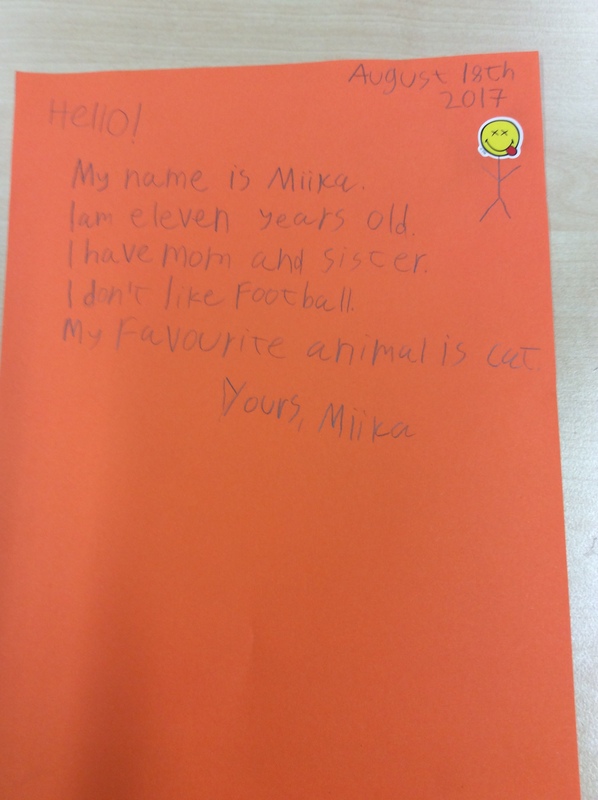 August 18th
2017
Hello!
My name is Miika.
I am eleven years old.
I have mom and sister.
I don't like Football.
My Favourite animal is cat.
Yours, Miika